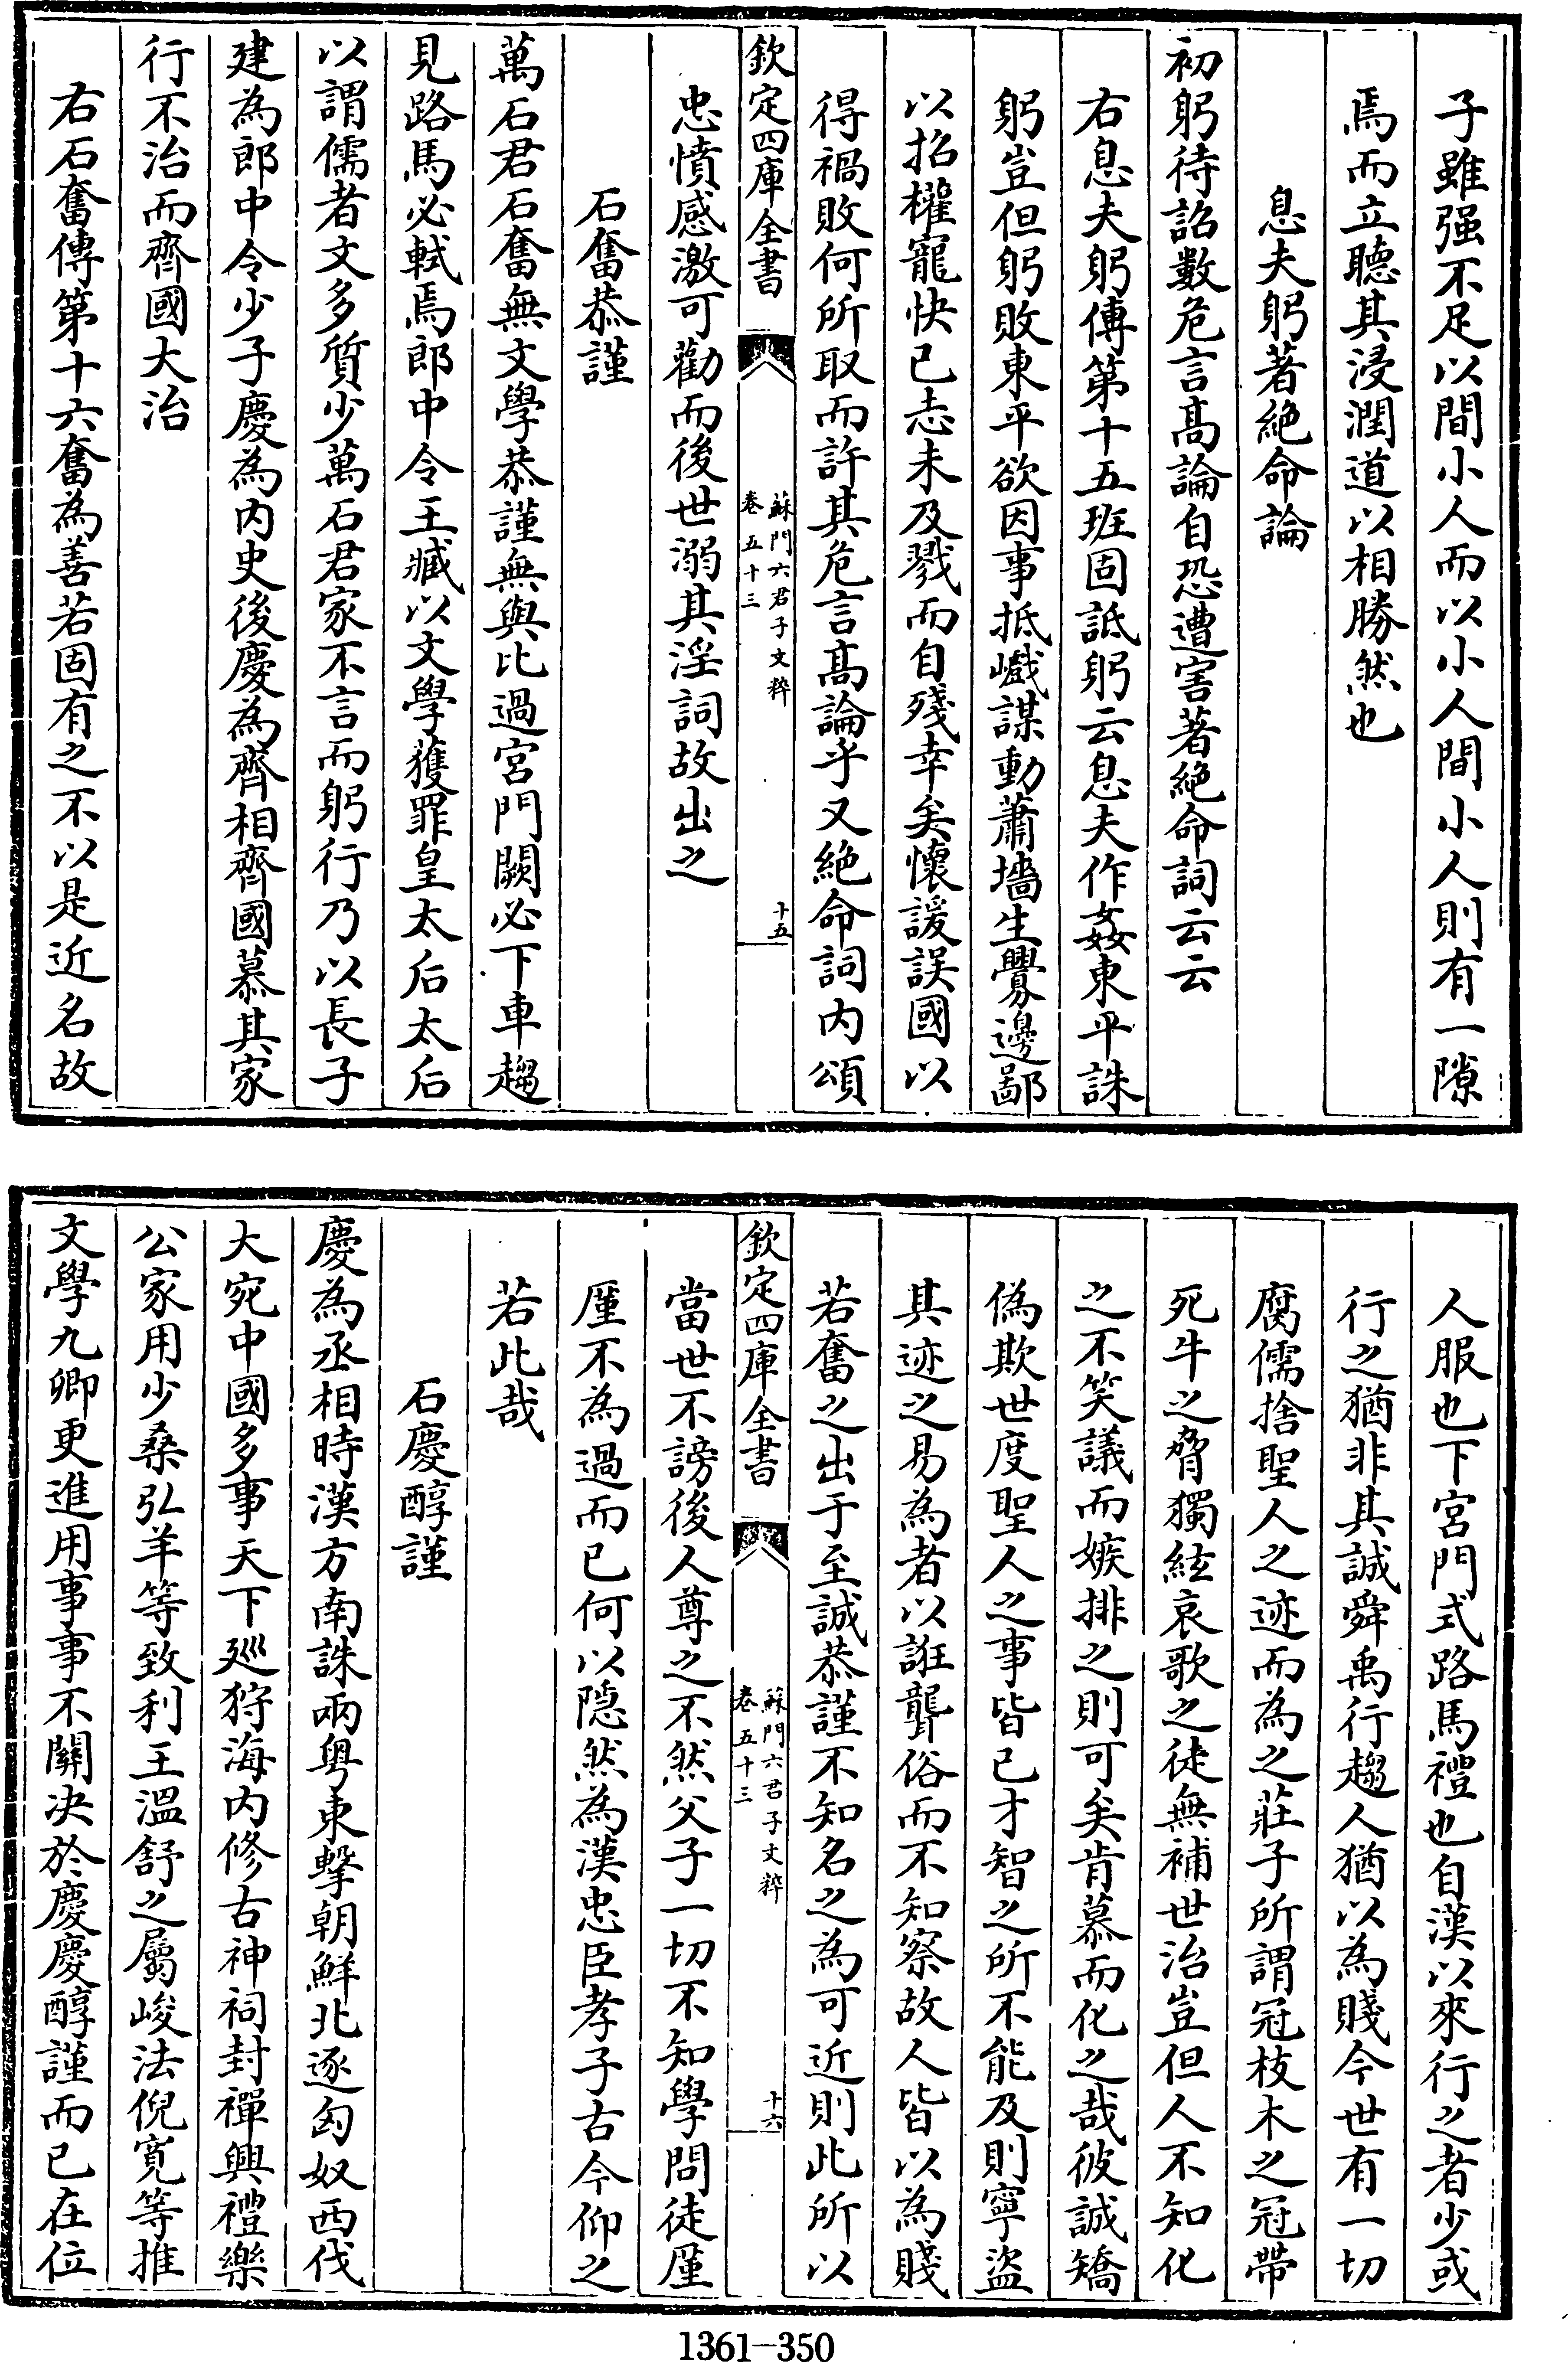 子雖强不足以間小人而以小人間小人則有一隙
焉而立聽其浸潤道以相勝然也
息夫躬著絶命論
初躬待詔數危言髙論自恐遭害著絶命詞云云
右息夫躬傳第十五班固詆躬云息夫作姦東平誅
躬豈但躬敗東平欲因事抵巇謀動蕭墻生釁邊鄙
以招權寵快已志未及戮而自殘幸矣懷諼誤國以
得禍敗何所取而許其危言髙論乎又絶命詞内頌
欽定四庫全書
蘇門六君子文粹
卷五十三
十五
忠憤感激可勸而後世溺其淫詞故出之
石奮恭謹
萬石君石奮無文學恭謹無與比過宮門闕必下車趨
見路馬必軾焉郎中令王臧以文學獲罪皇太后太后
以謂儒者文多質少萬石君家不言而躬行乃以長子
建為郎中令少子慶為内史後慶為齊相齊國慕其家
行不治而齊國大治
右石奮傳第十六奮為善若固有之不以是近名故
人服也下宮門式路馬禮也自漢以來行之者少或
行之猶非其誠舜禹行趨人猶以為賤今世有一切
腐儒捨聖人之迹而為之莊子所謂冠枝木之冠帶
死牛之脅獨絃哀歌之徒無補世治豈但人不知化
之不笑議而嫉排之則可矣肯慕而化之哉彼誠矯
偽欺世度聖人之事皆已才智之所不能及則寧盜
其迹之易為者以誑聾俗而不知察故人皆以為賤
若奮之出于至誠恭謹不知名之為可近則此所以
欽定四庫全書
蘇門六君子文粹
卷五十三
十六
當世不謗後人尊之不然父子一切不知學問徒厪
厪不為過而已何以隠然為漢忠臣孝子古今仰之
若此哉
石慶醇謹
慶為丞相時漢方南誅兩粤東擊朝鮮北逐匈奴西伐
大宛中國多事天下廵狩海内修古神祠封禪興禮樂
公家用少桑弘羊等致利王溫舒之屬峻法倪寛等推
文學九卿更進用事事不闗决於慶慶醇謹而已在位
1361-350